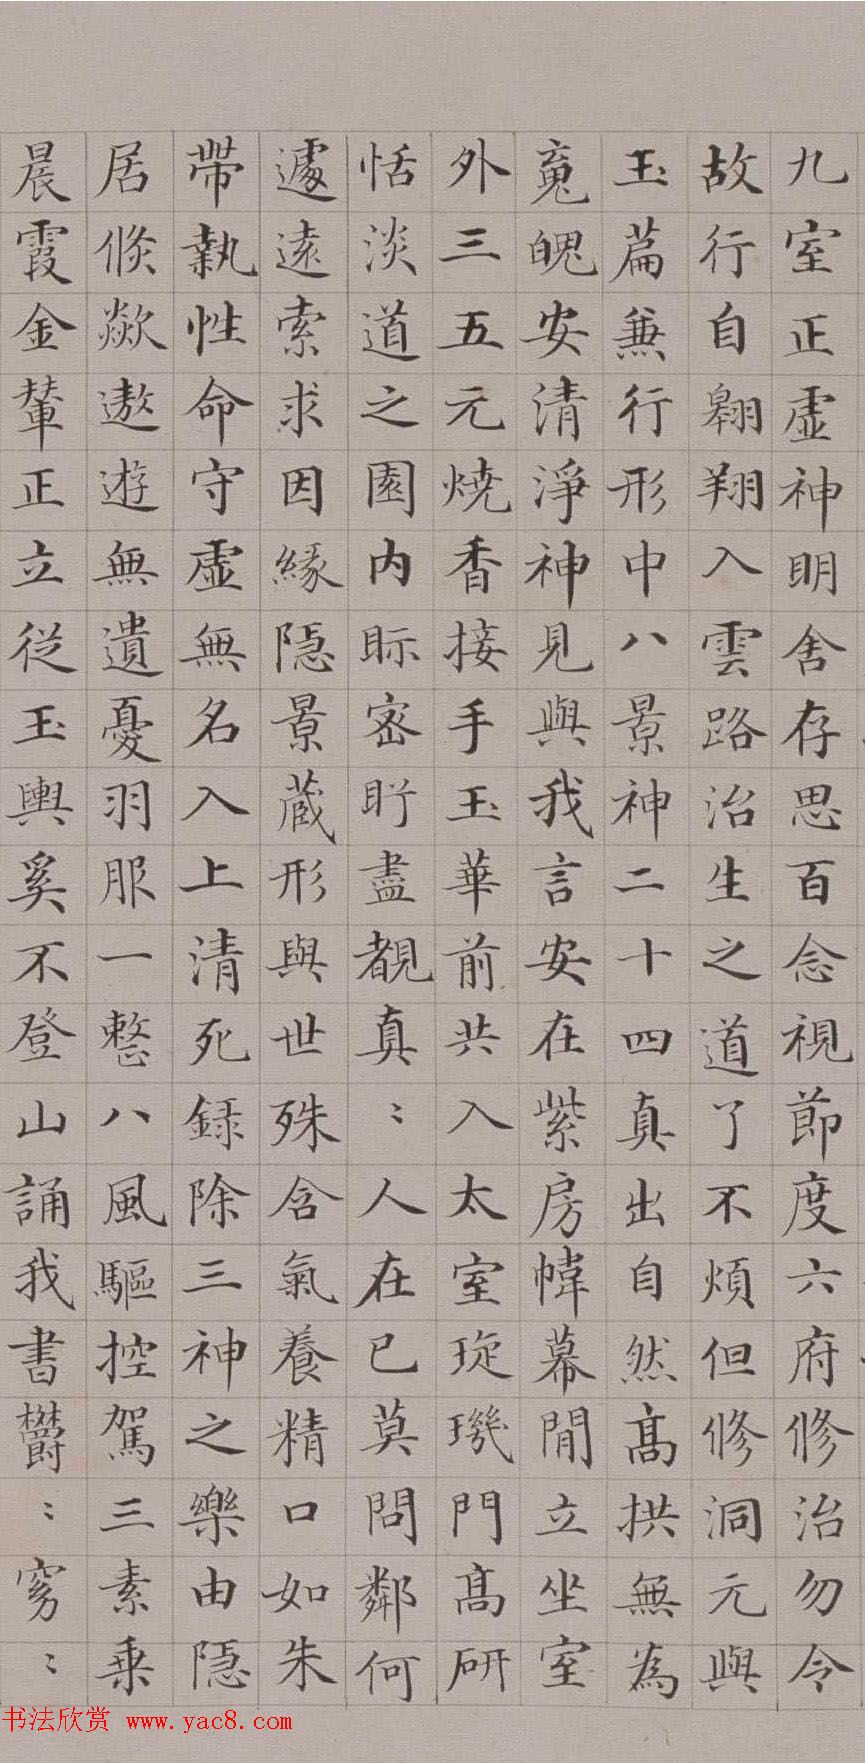 九室正虛神明舍存思百念視節度六府修治勿令
故行自翱翔入雲路治生之道了不煩但修洞元與
玉篇兼行形中八景神二十四真出自然高拱無為
䰟魄安清淨神見與我言安在紫房幃幕閒立坐室
外三五元燒香接手玉華前共入太室琁璣門高研
恬淡道之園內眎密盼盡覩真〻人在已莫問鄰何
遽遠索求因緣隱景藏形與世殊含氣養精口如朱
帶執性命守虛無名入上清死錄除三神之樂由隱
居倐歘遨遊無遺憂羽服一整八風驅控駕三素乗
晨霞金輦正立從玉輿奚不登山誦我書欝〻窈〻
书法欣赏 www.yac8.com